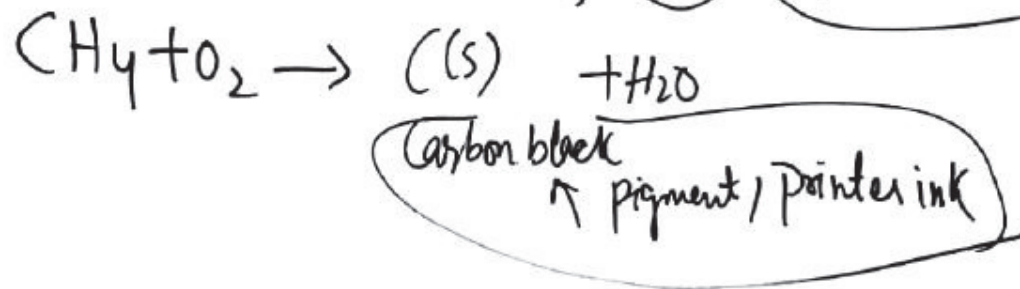 CH4+O2 → C(s) +H2O
Carbon black
↑ pigment, Printer ink